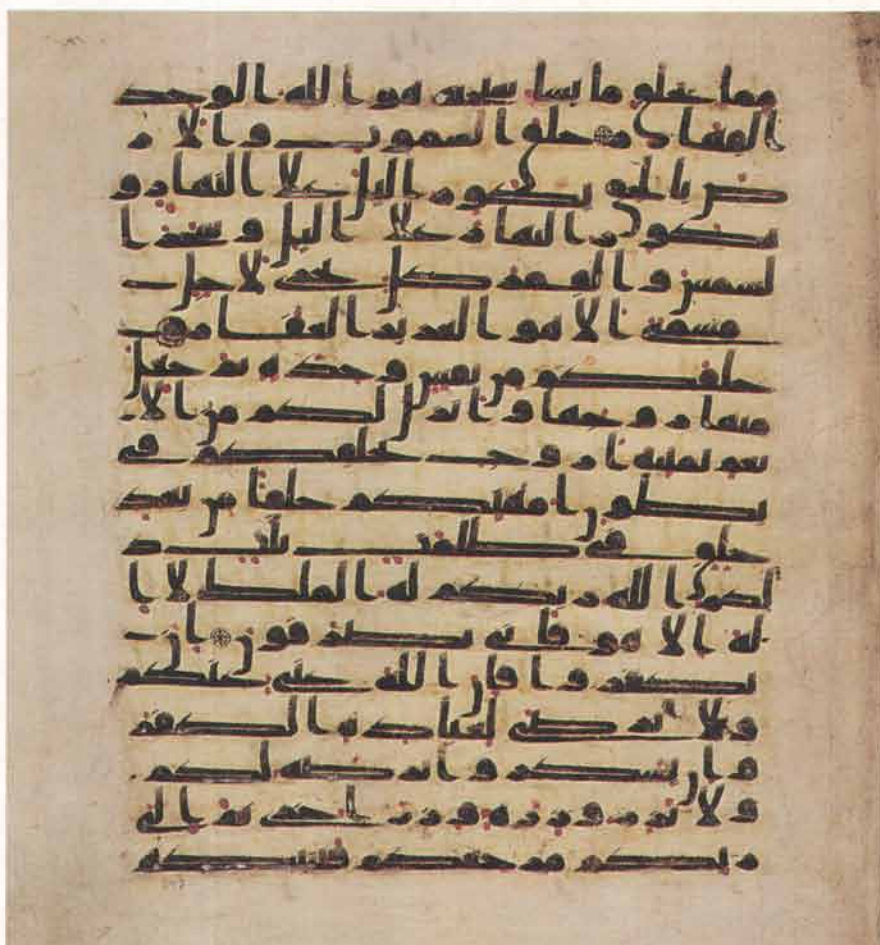 مما يخلق ما يشا سبحنه هو الله الوحد
القهار خلق السموت والار
ض بالحق يكور اليل علا النهار و
يكور النهار علا اليل وسخر ا
لشمس والقمر كل يجرى لاجل
مسمى الا هو العزيز الغفار
خلقكم من نفس وحدة ثم جعل
منها زوجها وانزل لكم من الا
نعم ثمنية ازوج يخلقكم في
بطون امهتكم خلقا من بعد
خلق في ظلمت ثلث ذ
لكم الله ربكم له الملك لا ا
له الا هو فانى تصرفون ان
تكفروا فان الله غنى عنكم
ولا يرضى لعباده الكفر
وان تشكروا يرضه لكم
ولا تزر وزرة وزر اخرى ثم الى
ربكم مرجعكم فينبئكم